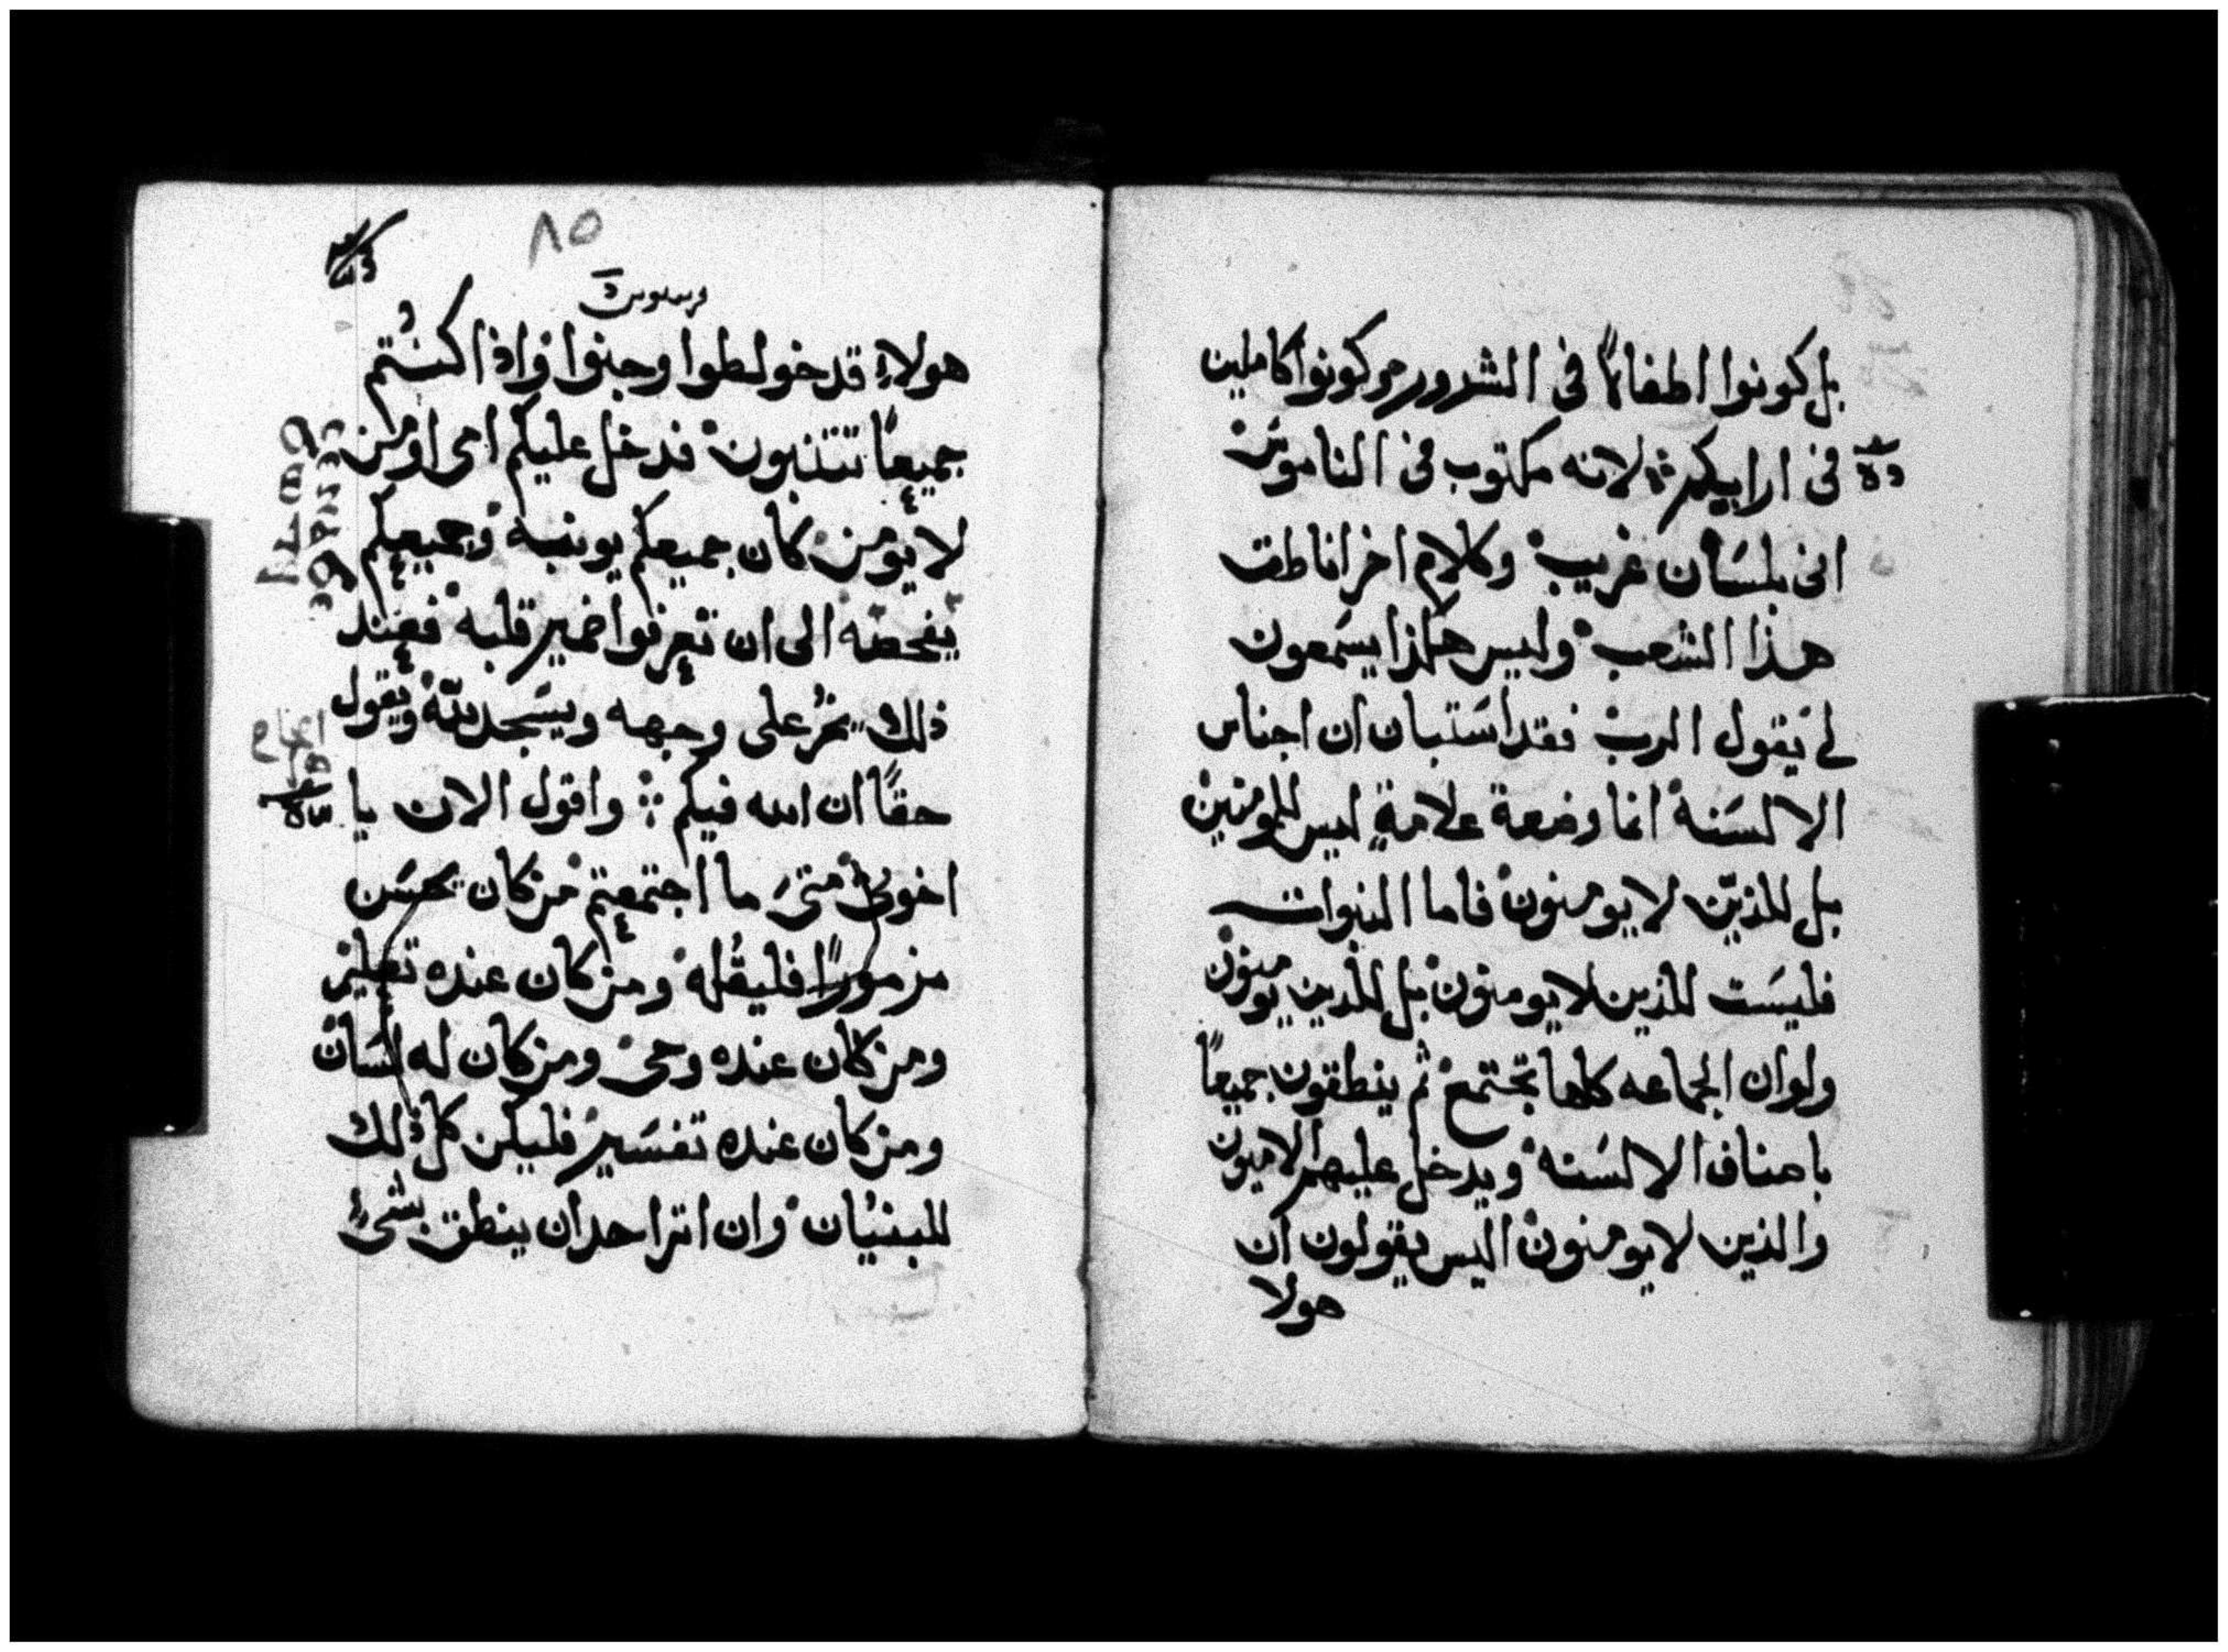 بل كونوا اطفالاً فى الشرور وكونوا كاملين
فى ارايكم لانه مكتوب فى الناموس
انى بلسان غريب وكلام اخر اناطق
هذا الشعب وليس هكذا يسمعون
لى يقول الرب فقد استبان ان اجناس
الالسنة انما وضعة علامة ليس للمومنين
بل للذين لا يومنون فاما النبوات
فليست للذين لا يومنون بل للذين يومنون
ولو ان الجماعه كلها تجتمع ثم ينطقون جميعاً
باصناف الالسنة ويدخل عليهم الاميون
والذين لا يومنون اليس يقولون ان
هولا
٨٥
هولاء قد خولطوا وجنوا واذا كنتم
جميعاً تتنبون فدخل عليكم امى او من
لا يومن كان جميعكم يونبه وجميعكم
يفحصه الى ان تعرفوا ضمير قلبه فعند
ذلك يخر على وجهه ويسجد لله ويقول
حقاً ان الله فيكم واقول الان يا
اخوتى متى ما اجتمعتم من كان يحسن
مزموراً فليقله ومن كان عنده تعليم
ومن كان عنده وحى ومن كان له لسان
ومن كان عنده تفسير فليكن كل ذلك
للبنيان وان اثر احد ان ينطق بشىء